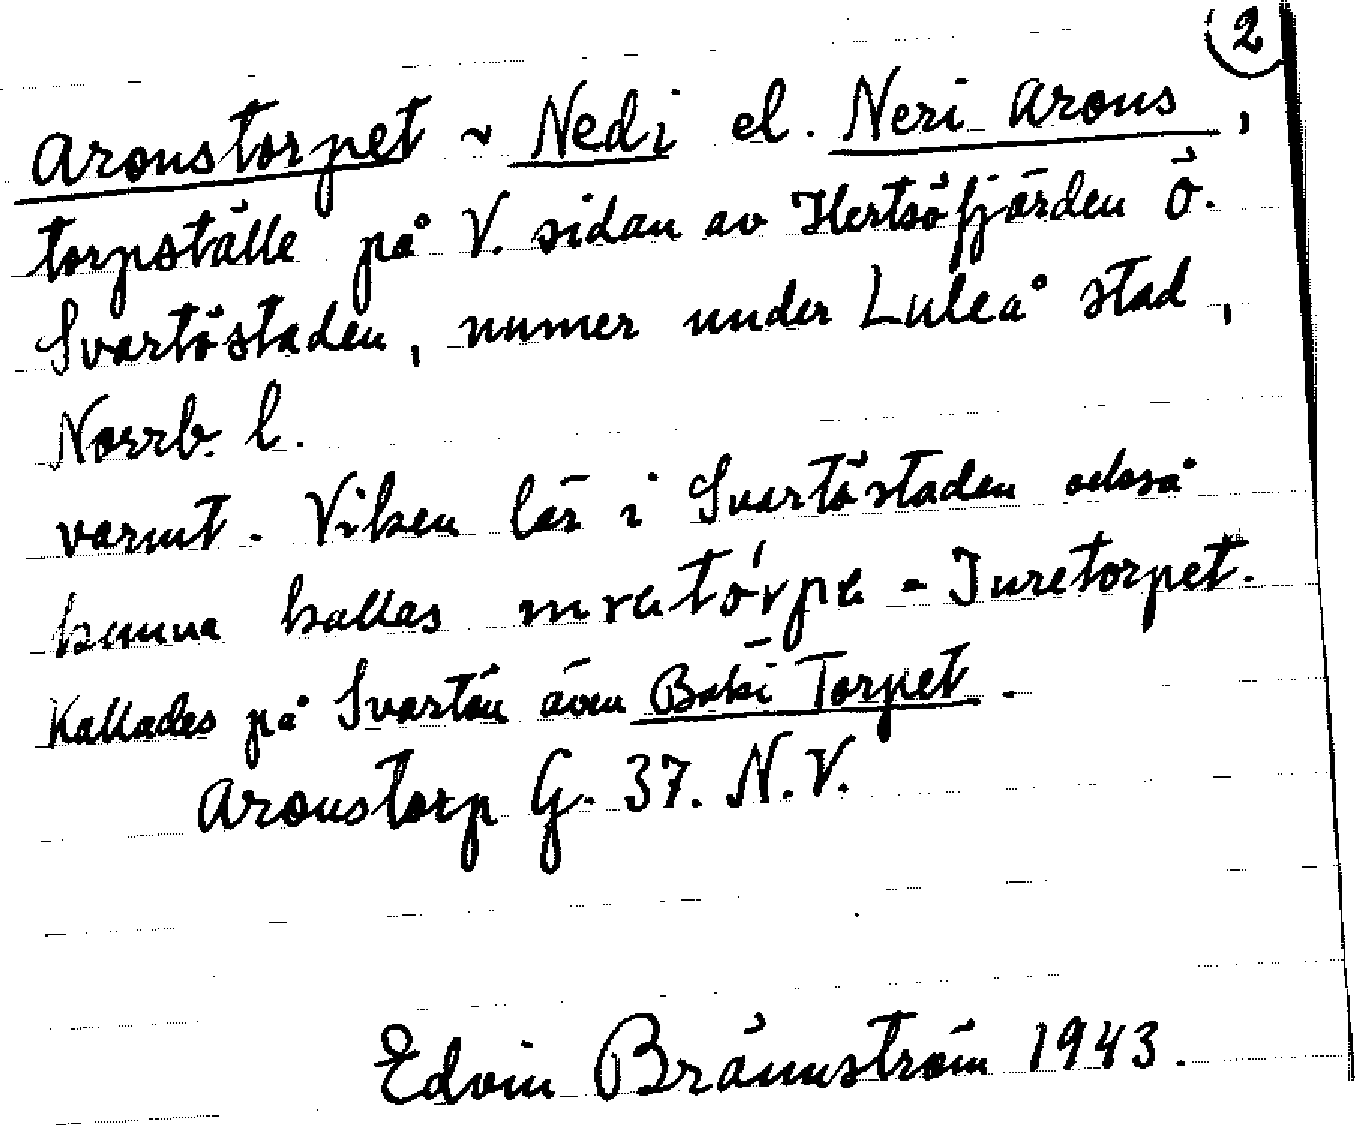 2
Aronstorpet ~ Nedi el. Neri Arons,
torpställe på V. sidan av Hertsöfjärden ö.
Svartöstaden, numer under Luleå stad,
Norrb. l.
varmt. Viken lär i Svartöstaden också
kunna kallas - Juretorpet.
Kallades på Svartön även Baki Torpet.
Aronstorp G. 37. N.V.
Edvin Brännström 1943.